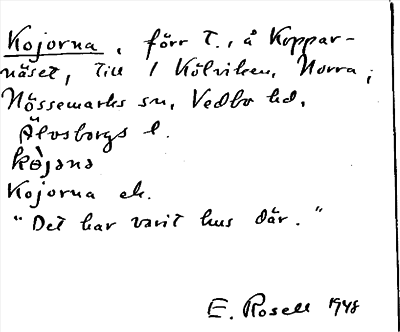 Kojorna, förr T., å Koppar-
näset, till 1 Kölviken, Norra,
Nössemarks sn, Vedbo hd,
Älvsborgs l.
Kojorna ek.
"Det har varit hus där."
E. Rosell 1948